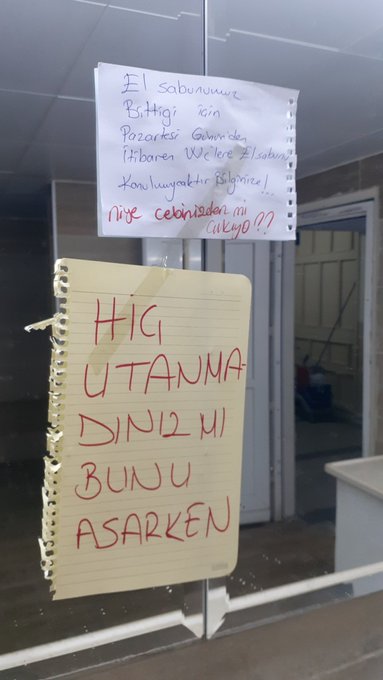 El sabunumuz
Bittiği için
Pazartesi Gününden
İtibaren Wclere Elsabunu
Konulmuycaktır Bilginize!...
niye cebinizden mi
çıkıyo??
HİÇ
UTANMA-
DINIZ MI
BUNU
ASARKEN